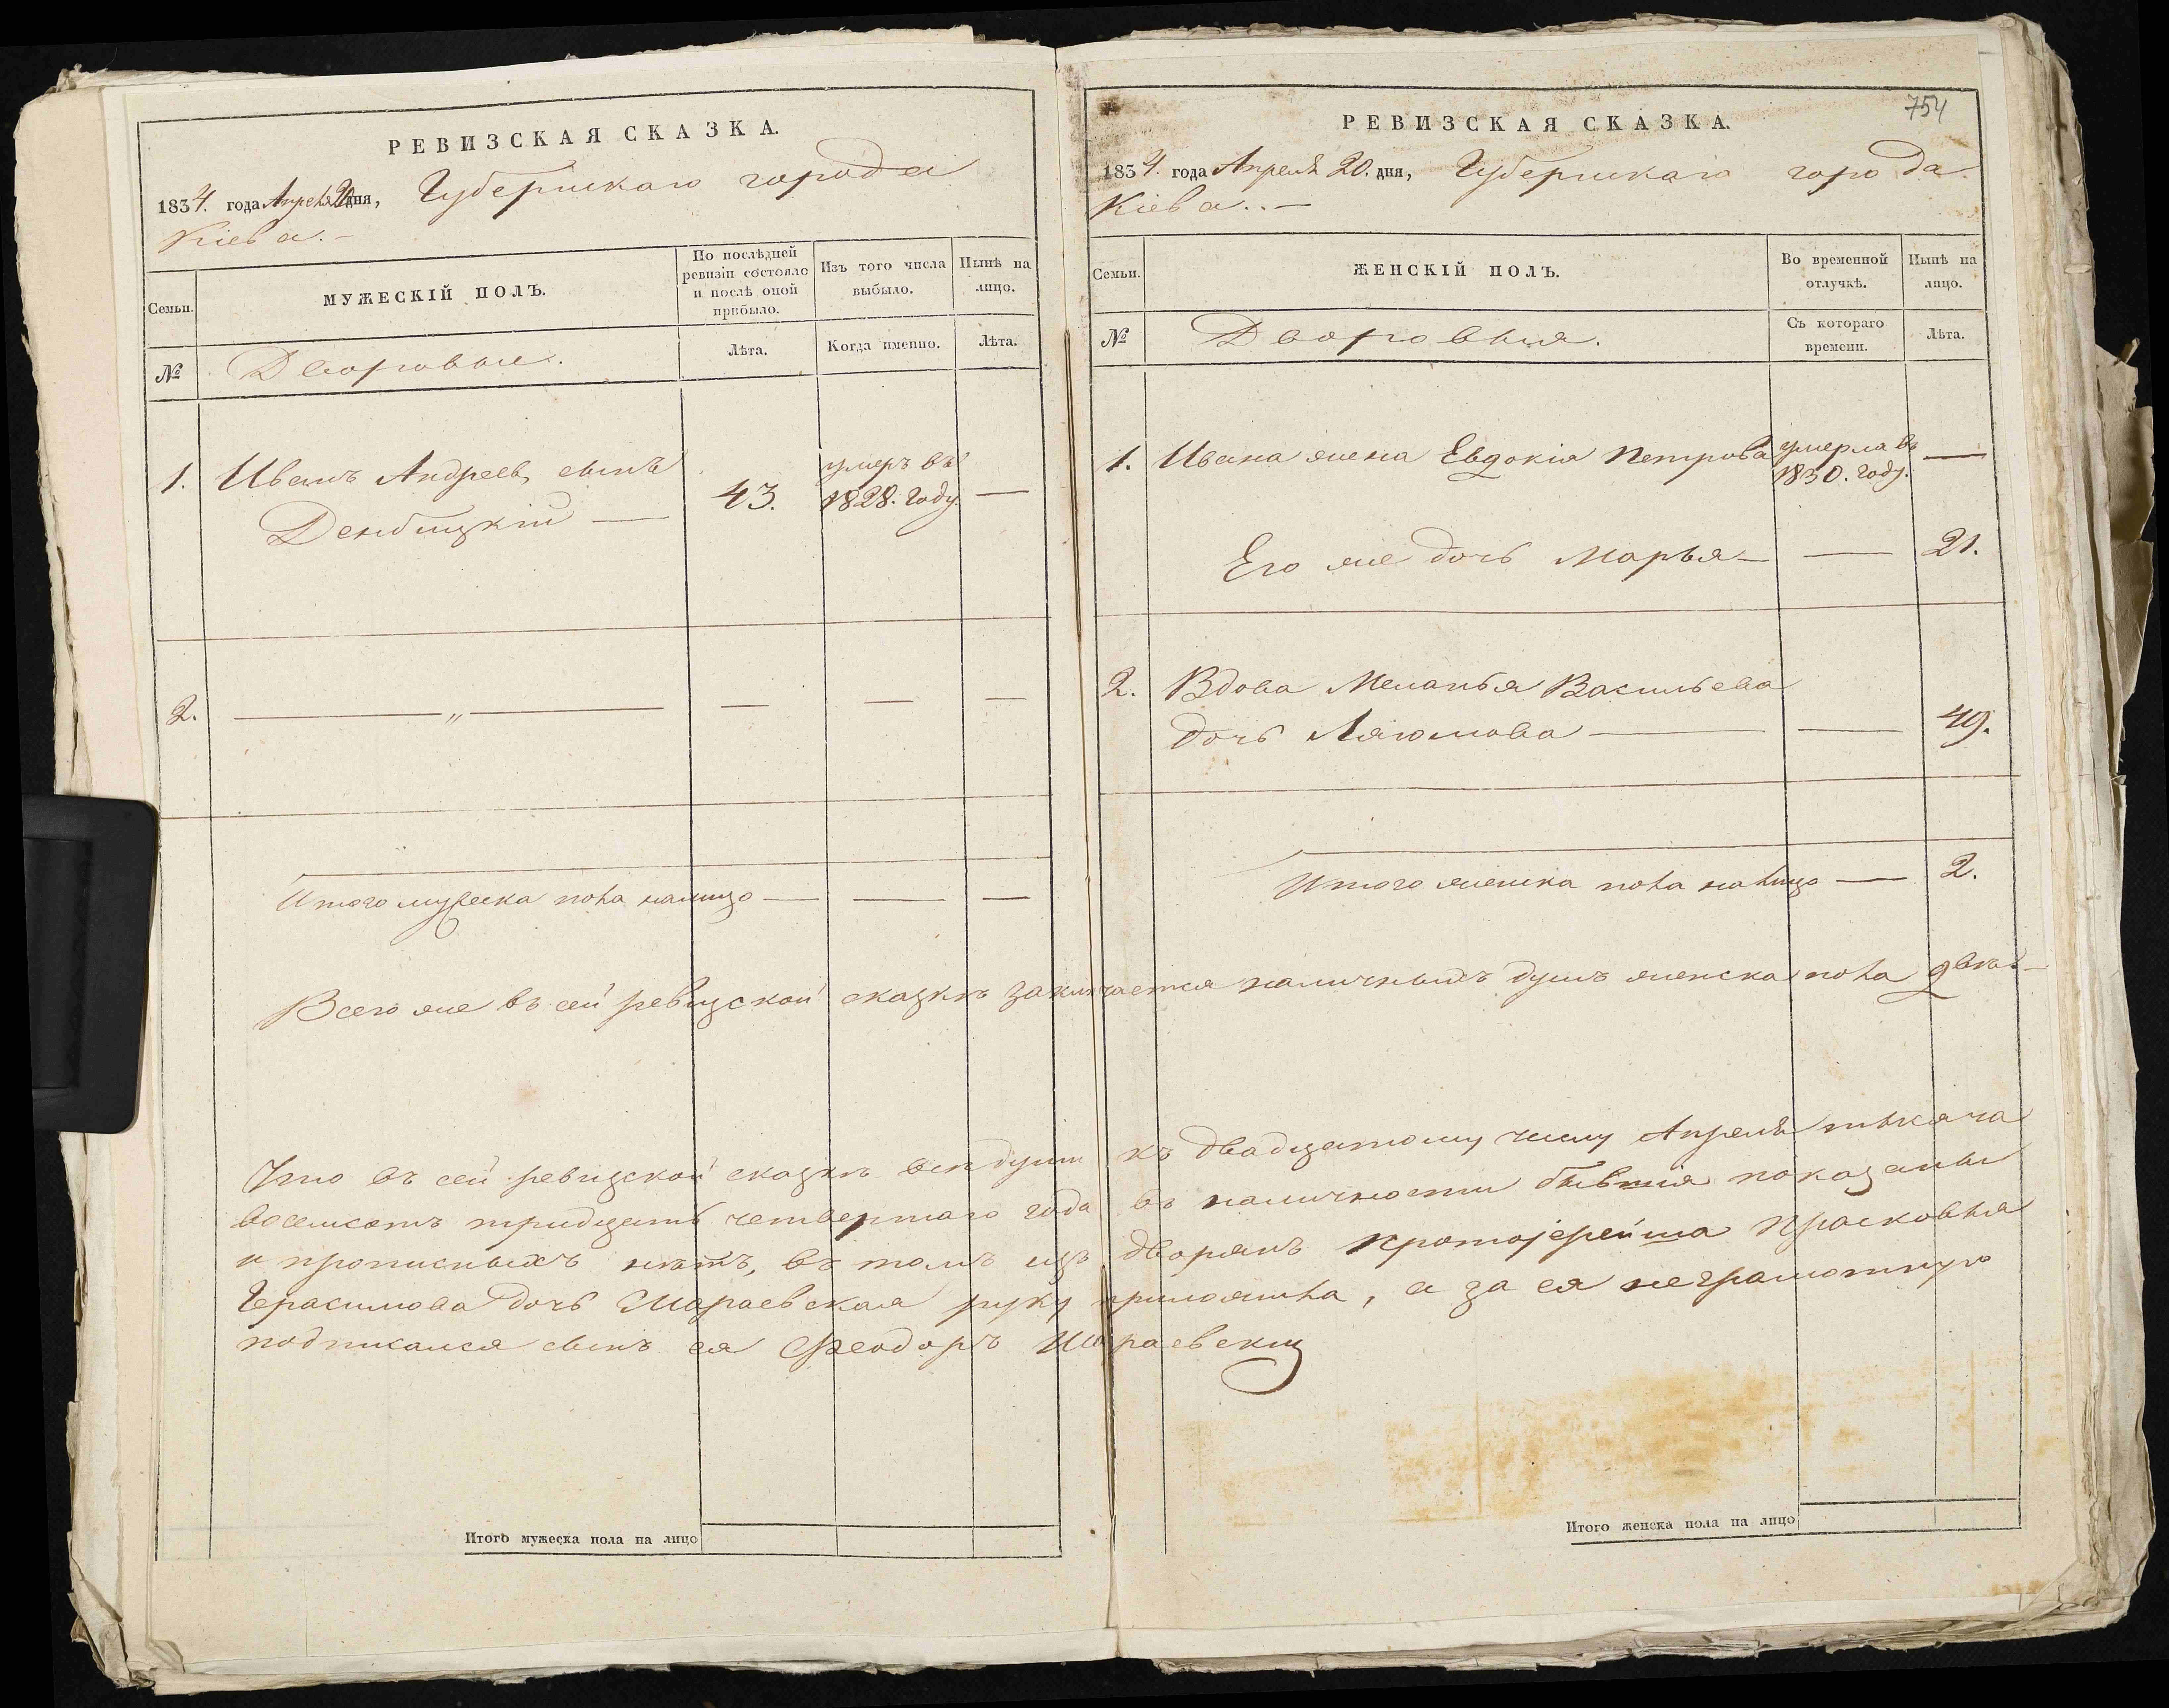 РЕВИЗСКАЯ СКАЗКА.
1834. года Апреля 20 дня, Губернскаго города
Кіева.-
Семьи.
МУЖЕСКІЙ ПОЛЪ.
По послѣдней
ревизіи состояло
и послѣ оной
прибыло.
Изъ того числа
выбыло.
Нынѣ на
лицо.
№
Дворовые.
Лѣта.
Когда именно.
Лѣта.
1. Иванъ Андреевъ сынъ
Дембицкій — 43. умеръ въ
1828. году. —
2. — „ — — — —
Итого мужеска пола налицо — — —
РЕВИЗСКАЯ СКАЗКА.
754
1834. года Апреля 20. дня, Губернскаго города
Кіева..-
Семьи.
ЖЕНСКІЙ ПОЛЪ.
Во временной
отлучкѣ.
Нынѣ на
лицо.
№
Дворовыя.
Съ котораго
времени.
Лѣта.
1. Ивана жена Евдокія Петрова умерла въ
1830. году. —
Его же дочь Марья — — 21.
2. Вдова Меланья Васильева
дочь — — 49.
Итого женска пола налицо — 2.
Всего же въ сей ревизской сказкѣ заключается наличныхъ душъ женска пола двѣ —
Что въ сей ревизской сказкѣ всѣ души къ двадцатому числу Апреля тысяча
восемсотъ тридцать четвертаго года въ наличности бывшія показаны
и прописныхъ нѣтъ, въ томъ изъ дворянъ протоіерейша Прасковья
Герасимова дочь руку приложила, а за ея неграмотную
подписался сынъ ея Феодоръ
Итого мужеска пола на лицо
Итого женска пола на лицо